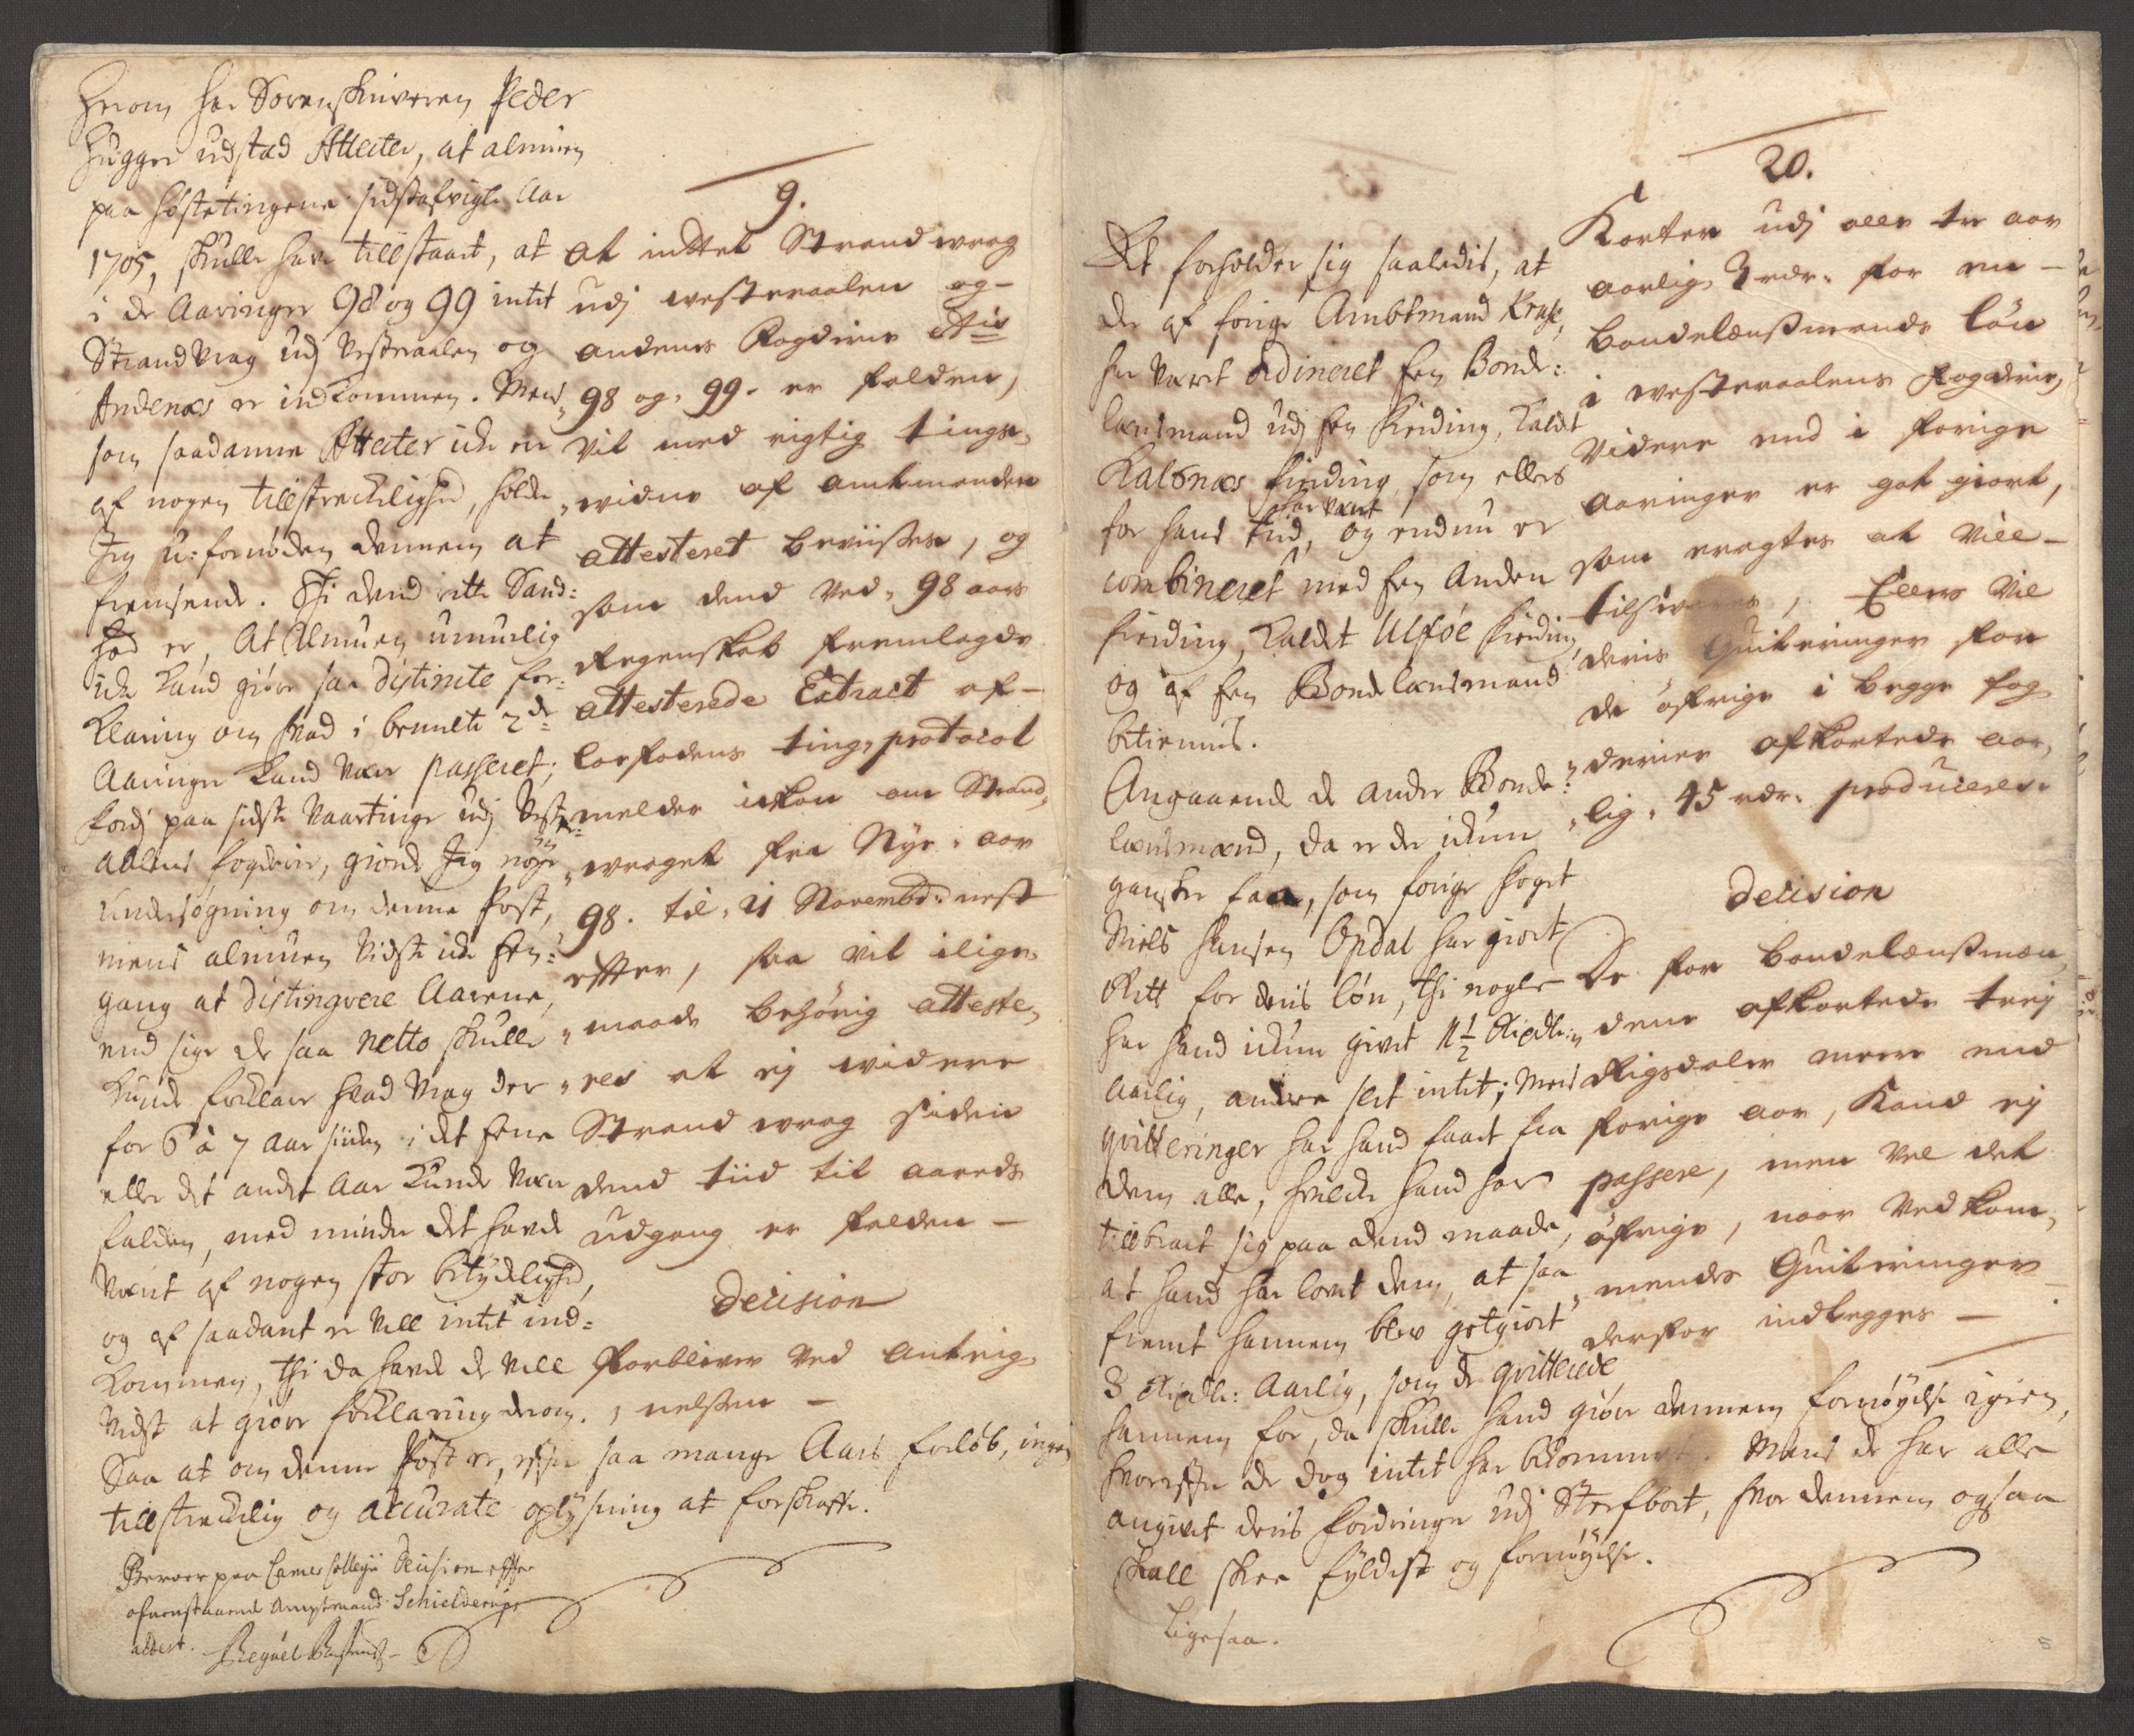 Hrom har Sorenskriveren Peder
Hugger udstæd Attester, at almuen
paa Høstetingene sidstafvigte Aar
1705, skulle have tillstaaet, at
i de Aaringer 98 og 99 intet
StrandVrag udj Vesteraalen og
Andenæs er indkommen. Mens
som saadanne Attester icke er
af nogen tillstreckelighed, holder
Jeg u:fornøden dennem at
fremsende. Thi dend rette Sand:
hed er, At Almuen umuelig
icke kand giøre saa distincte for:
klaring om hvad i bemelte 2de
Aaringer kand være passeret;
fordj paa sidste Vaartinge udj Vester:
aalens fogderie, giorde Jeg nøye
undersøgning om denne Post,
mens almuen vidste icke een:
gang at distingvere Aarene,
end sige de saa netto skulle
kunde forklare hvad Vrag der
for 6 à 7 Aar siiden i det eene
eller det andet Aar kunde være
falden, med mindre det hafde
været af nogen stor betydelighed,
og af saadant er vell intet ind:
kommen, thi da hafde de vell
vidst at giøre forklaring derom.
Saa at om denne Post er, efter saa mange Aars forløb, ingen
tillstreckelig og accurate oplysning at forskaffe.
Beroer paa Camer Collegii Decision efter
ofvenstaaende Amptmand Schielderups
attest.
9.
at inttet Strandwrag
udj westeraalen og
andenes Fogderie Ais
98 og 99. er falden,
vil med rigtig tings
widne af amtmanden
attesteret beviisses, og
som dend ved 98 aars
Regenskab fremlagde
attesterede Extract af
Loefodens tings protocol
melder ickon om Strand
wraget fra Nye aar
98. til 21 Novembr: nest
effter, saa vil i lige
maade behørig atteste
res at ej widere
Strand wrag siden
dend tiid til aareds
udgang er falden
Decision
Forbliver ved anteig
nelsen
20.
Det forholder sig saaledis, at
der af forige Ambtmand Kruse,
har været ordineret een Bonde:
lænsmand udj een fierding, kaldet
Kalsnæs fierding som ellers
for hans tid, har været og endnu er
combineret med een Anden
fierding, kaldet Ulføe fierding,
og af een Bondelænsmand
betiennis.
Angaaende de andre Bonde:
lænsmænd, da er der ickun
gandske faa, som forige foget
Niels Hansen Opdal har giort
Rett for deris løn, thi nogle
har hand ickun givet 1½ Rixdlr:
aarlig, andre slet intet; Mens
qvitteringer har hand faaet fra
dem alle, hvilcke hand har
tillbract sig paa dend maade,
at hand har lovet dem, at saa
fremt hannem blev gotgiort
3 Rixdlr: Aarlig, som de qvitterede
hannem for, da skulle hand giøre dennem fornøyelse igien,
hvorefter de dog intet har bekommet. Mens de har alle
angivet deris fordringer udj Sterfboet, hvor dennem ogsaa
skall skee fyldist og fornøyelse.
Ligesaa.
Korter udj alle tre aar
aarlig 3 rdr: for en
bondelensmands løn
i westeraalens Fogderie
videre end i forige
aaringer er got giort,
som eragtes at vill
tilsvares, Ellers vil
deris Quiteringer for
de øfrige i begge fog
derier afkortede aar,
lig 45 rdr: produceres.
Decision
De for bondelensmæn
dene afkortede trej
Rigsdaler mere end
forige aar, kand ej
passere, men vel det
øfrige, naar vedkom
mendes Quiteringer
derfor indlegges
5